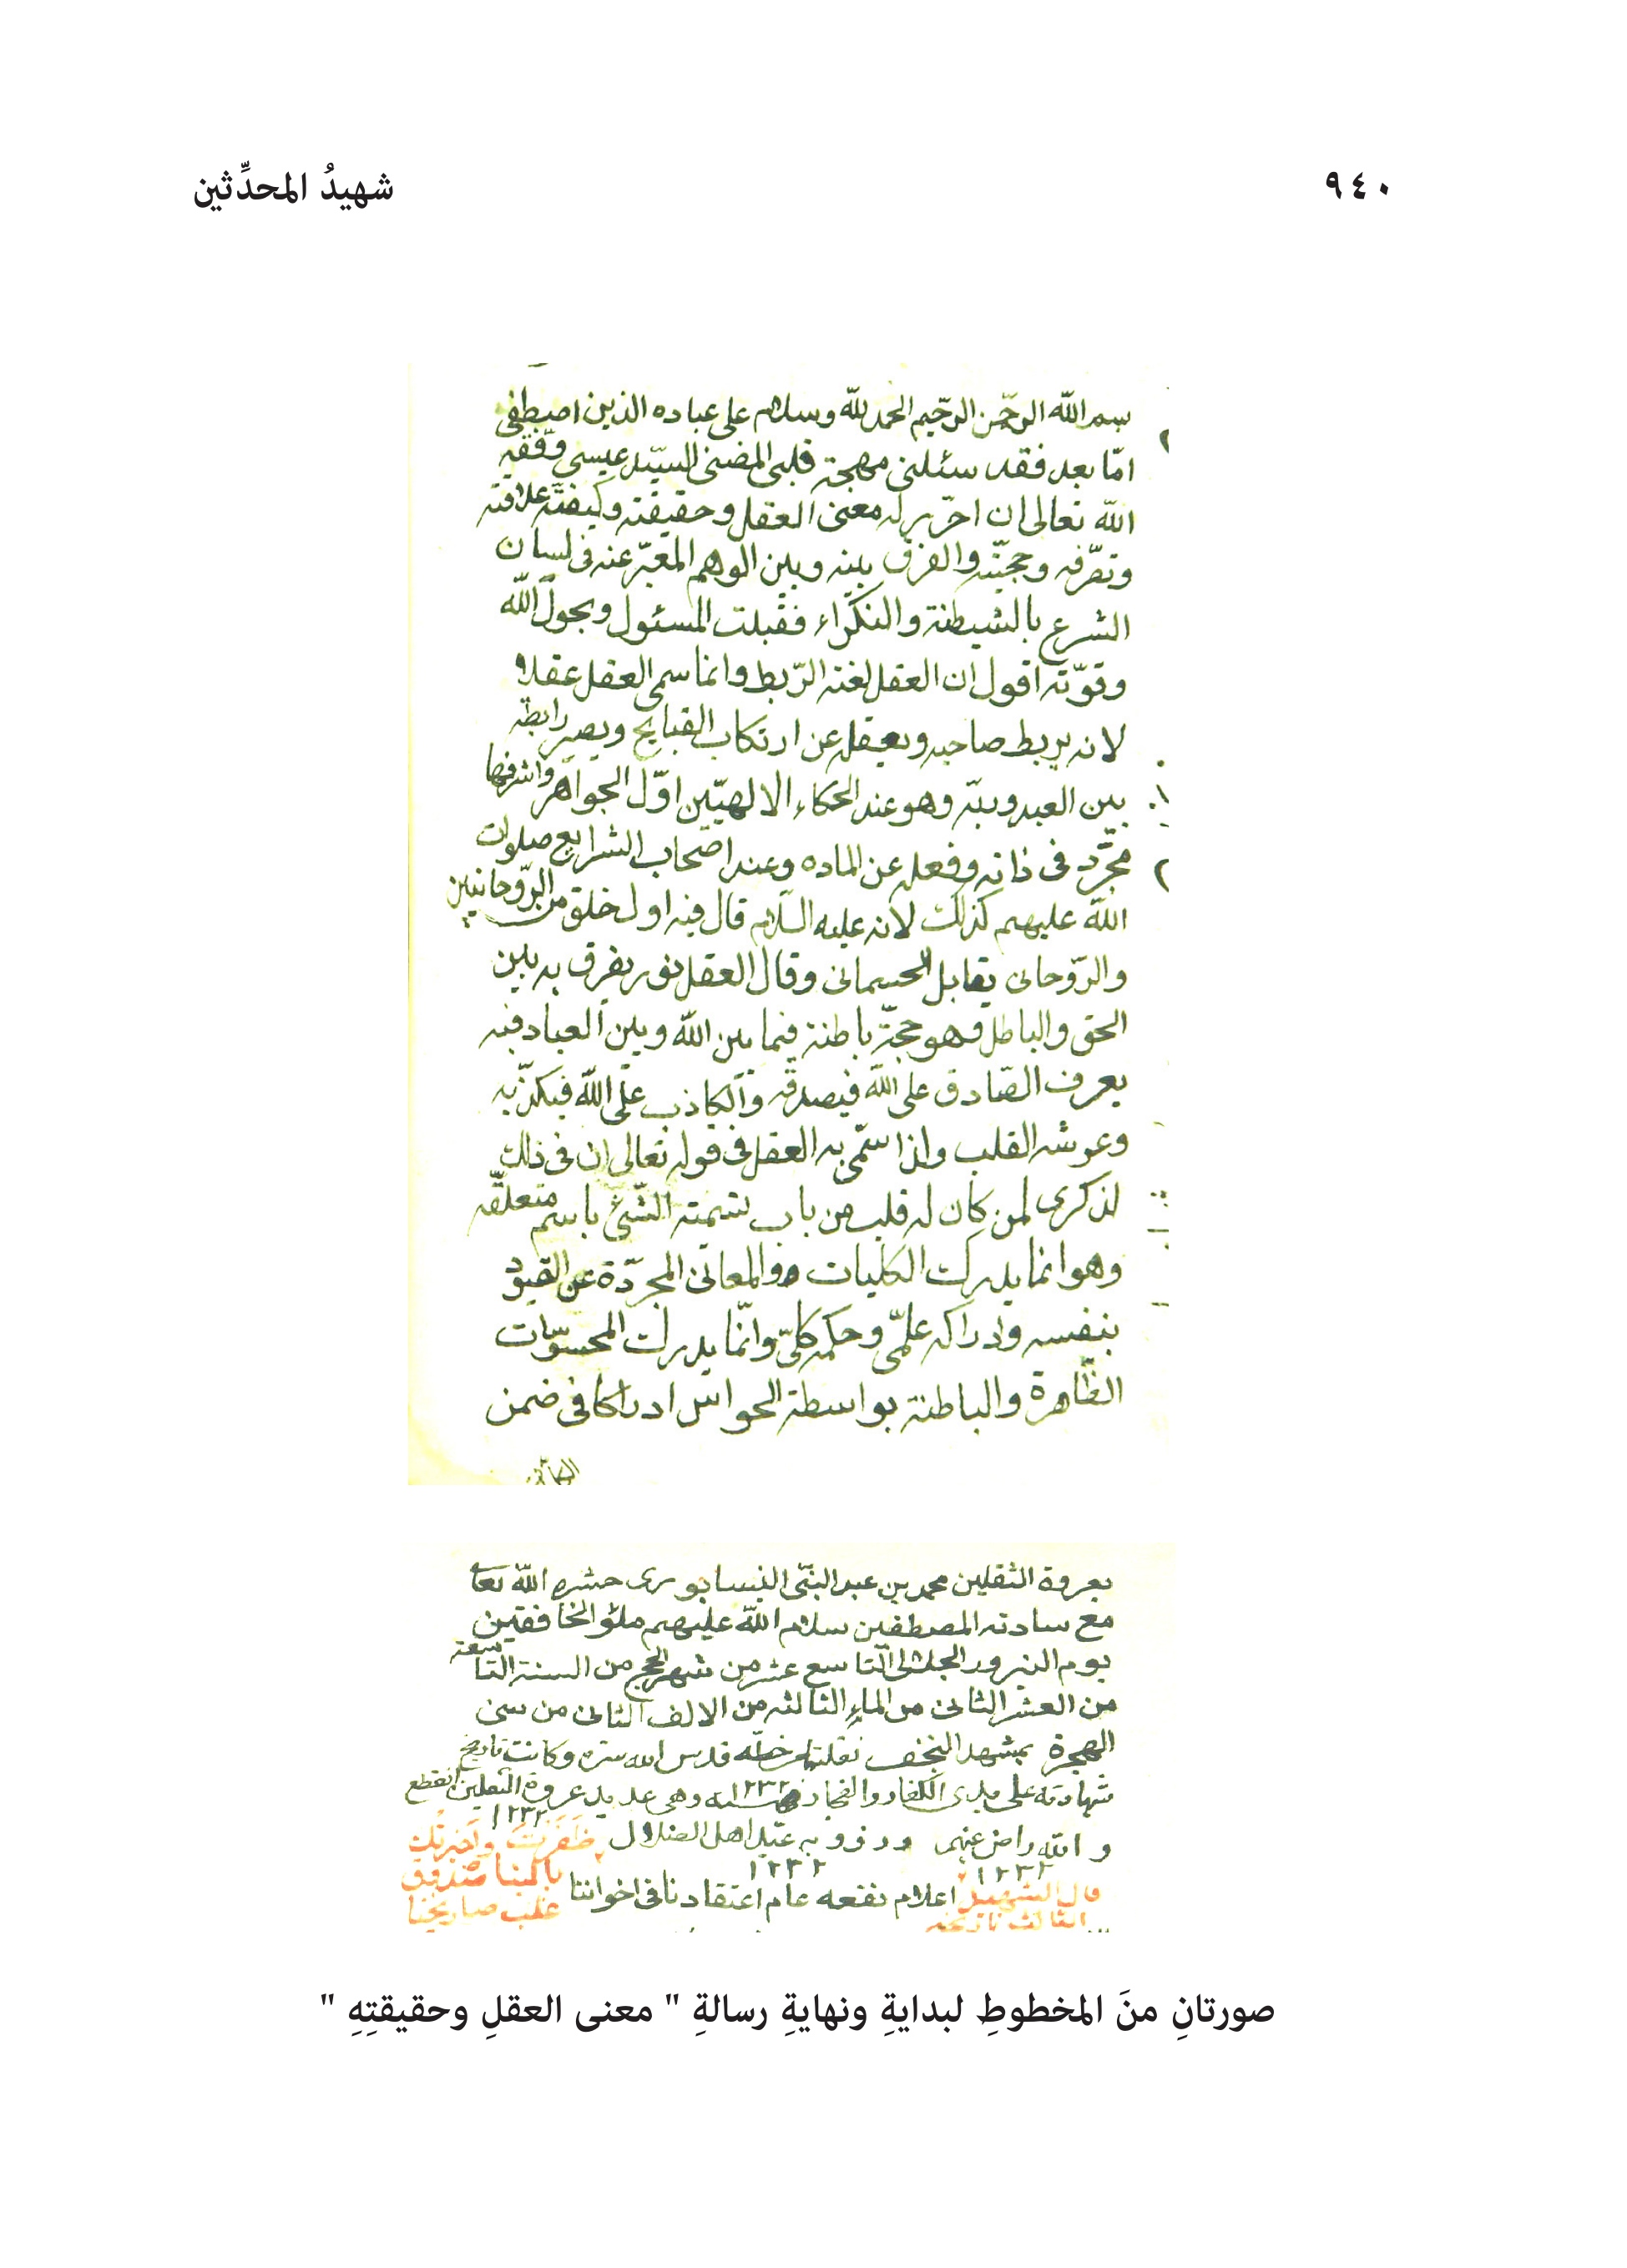 ٩٤٠
شهيدُ المحدِّثين
بسم الله الرحمن الرحيم الحمد لله وسلام على عباده الذين اصطفى
امّا بعد فقد سئلنى مهجة قلبى المضنى السيّد عيسى وفّقه
الله تعالى ان احرّر له معنى العقل وحقيقته وكيفيّة علاقته
وتصرّفه وحجيّته والفرق بينه وبين الوهم المعبّر عنه فى لسان
الشرع بالشيطنة والنكراء فقبلت المسئول وبحول الله
وقوّته اقول ان العقل لغة الرّبط وانما سمى العقل عقلا
لانه يربط صاحبه ويعقله عن ارتكاب القبايح ويصير رابطة
بين العبد وربّه وهو عند الحكماء الالهيّين اوّل الجواهر واشرفها
مجرّد فى ذاته وفعله عن الماده وعند اصحاب الشرايع صلوات
الله عليهم كذلك لانه عليه السّلام قال فيه اول خلق من الرّوحانيين
والرّوحانى يقابل الجسمانى وقال العقل نور يفرق به بين
الحق والباطل فهو حجّة باطنة فيما بين الله وبين العباد فبه
يعرف الصّادق على الله فيصدقه والكاذب على الله فيكذّبه
وعرشه القلب ولذا سمّى به العقل فى قوله تعالى ان فى ذلك
لذكرى لمن كان له قلب من باب تسمية الشّىء باسم متعلّقه
وهو انما يدرك الكليات والمعانى المجرّدة عن القيود
بنفسه وادراكه علمّى وحكمه كلىّ وانّما يدرك المحسوسات
الظّاهرة والباطنة بواسطة الحواس ادراكا فى ضمن
بعروة الثقلين محمد بن عبد النبّى النيسابورى حشره الله تعا
مع سادته المصطفين سلام الله عليهم ملؤ الخافقين
يوم النيروز الجلالى التاسع عشر من شهر الحج من السنة التاسعة
من العشر الثانى من الماء الثالثه من الالف الثانى من سنى
الهجرة بمشهد النجف نقلتها من خطّه قدس الله سره وكانت تاريخ
شهادته على يدى الكفار والفجار ١٢٣٢ وهى عديد عروة الثقلين انقطع
١٢٣٢
و الله راض عنهم ظَفَرْتَ
١٢٣٢ ١٢٣٢
قال الشهيد اعلام نفعه عام اعتقادنا فى اخواننا
الثالث
صورتانِ منَ المخطوطِ لبدايةِ ونهايةِ رسالةِ " معنى العقلِ وحقيقتِهِ "